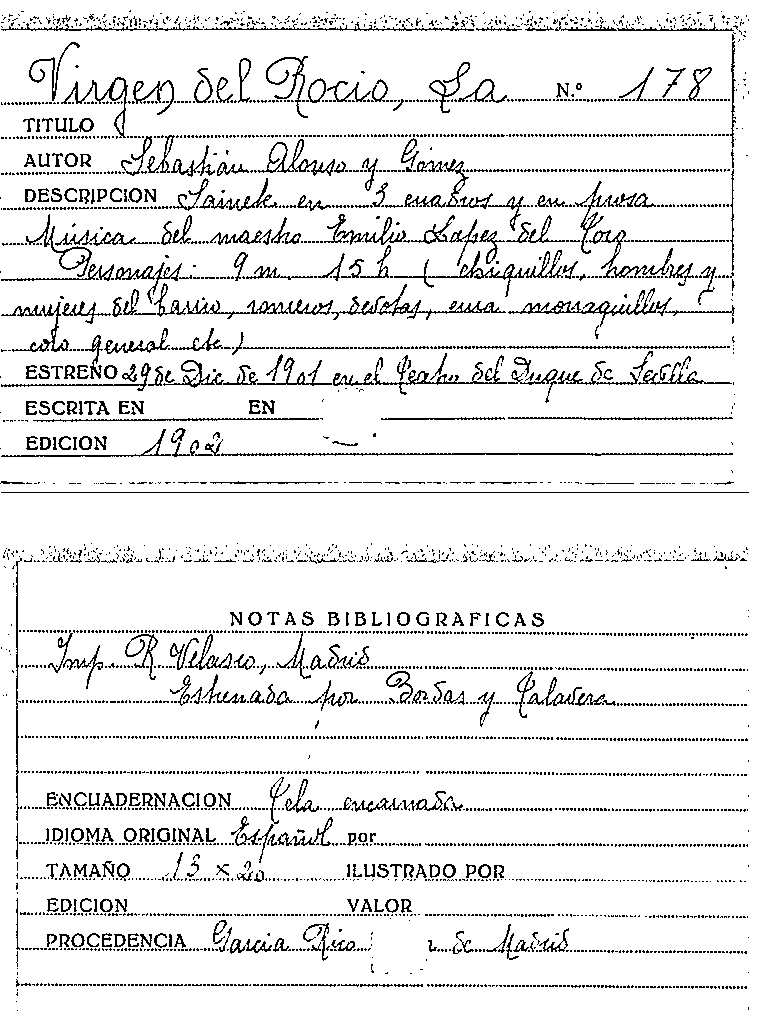 Virgen del Rocio, La N.º 178
TITULO
AUTOR Sebastián Alonso y Gómez
DESCRIPCION Sainete en 3 cuadros y en prosa
Música del maestro Emilio Lopez del Toro
Personajes: 9 m. 15 h (chiquillos, hombres y
mujeres del barrio, romeros, devotas, cura monaguillos,
coro general etc.)
ESTRENO 29 de Dic de 1901 en el Teatro del Duque de Sevilla
ESCRITA EN EN
EDICION 1902
NOTAS BIBLIOGRAFICAS
Imp. R Velasco, Madrid
Estrenada por Bordas y Talavera
ENCUADERNACION Tela encarnada
IDIOMA ORIGINAL Español por
TAMAÑO 13 x 20 ILUSTRADO POR
EDICION VALOR
PROCEDENCIA Garcia Rico de Madrid